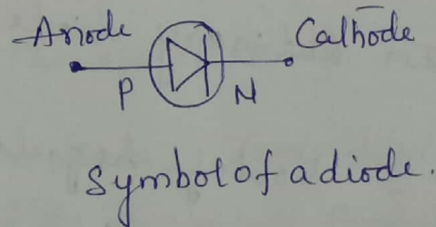 Anode Cathode
P N
Symbol of a diode.